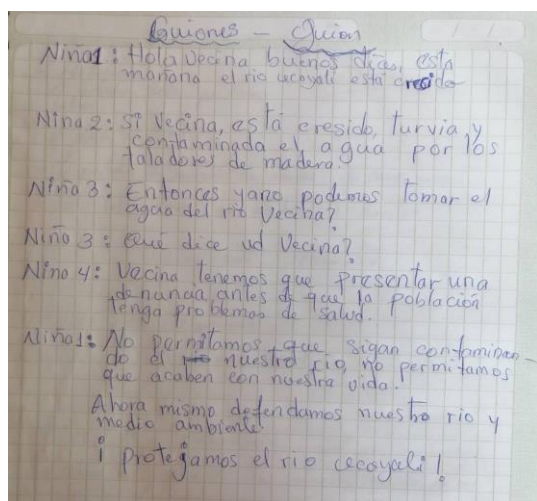 Guiones - Guion
Niña1: Hola Vecina buenos dias, esta
mañana el rio ucayali está cresido
Niña 2: Si Vecina, está cresido, turvia, y
contaminada el agua por los
taladores de madera.
Niña 3: Entonces yano podemos tomar el
agua del rio Vecina?
Niño 3: Qué dice ud Vecina?
Niño 4: Vecina tenemos que presentar una
denuncia antes de que la población
tenga problemas de salud.
Niño1: No permitamos que sigan contaminan-
do el nuestro rio, no permitamos
que acaben con nuestra vida.
Ahora mismo defendamos nuestro rio y
medio ambiente.
¡ protejamos el rio ucayali !